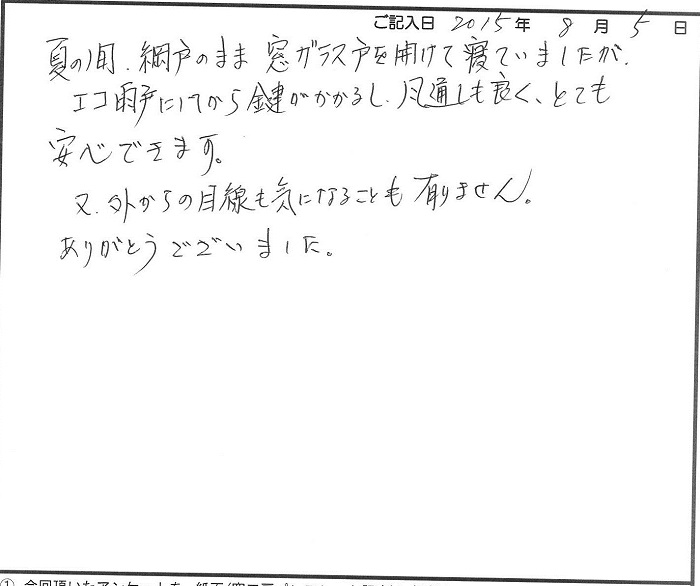 ご記入日 2015年 8月 5日
夏の間、網戸のまま 窓ガラス戸を開けて寝ていましたが、
エコ雨戸にしてから鍵がかかるし、風通しも良く、とても
安心できます。
又、外からの目線も気になることも有りません。
ありがとうございました。